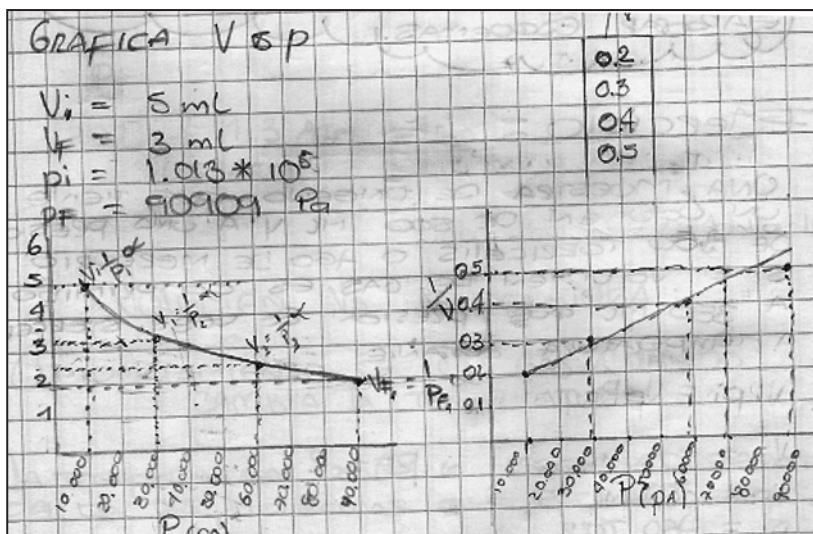 GRAFICA V vs P
Vi = 5 mL
VF = 3 mL
pi = 1.013 * 10⁵
pF = 90909 Pa
0.2
0.3
0.4
0.5
6
5
4
3
2
1
10,000
20,000
30,000
60,000
70,000
80,000
90,000
1/V
0.5
0.4
0.3
0.2
0.1
10,000
20,000
30,000
40,000
50,000
60,000
70,000
80,000
90,000
P (pA)